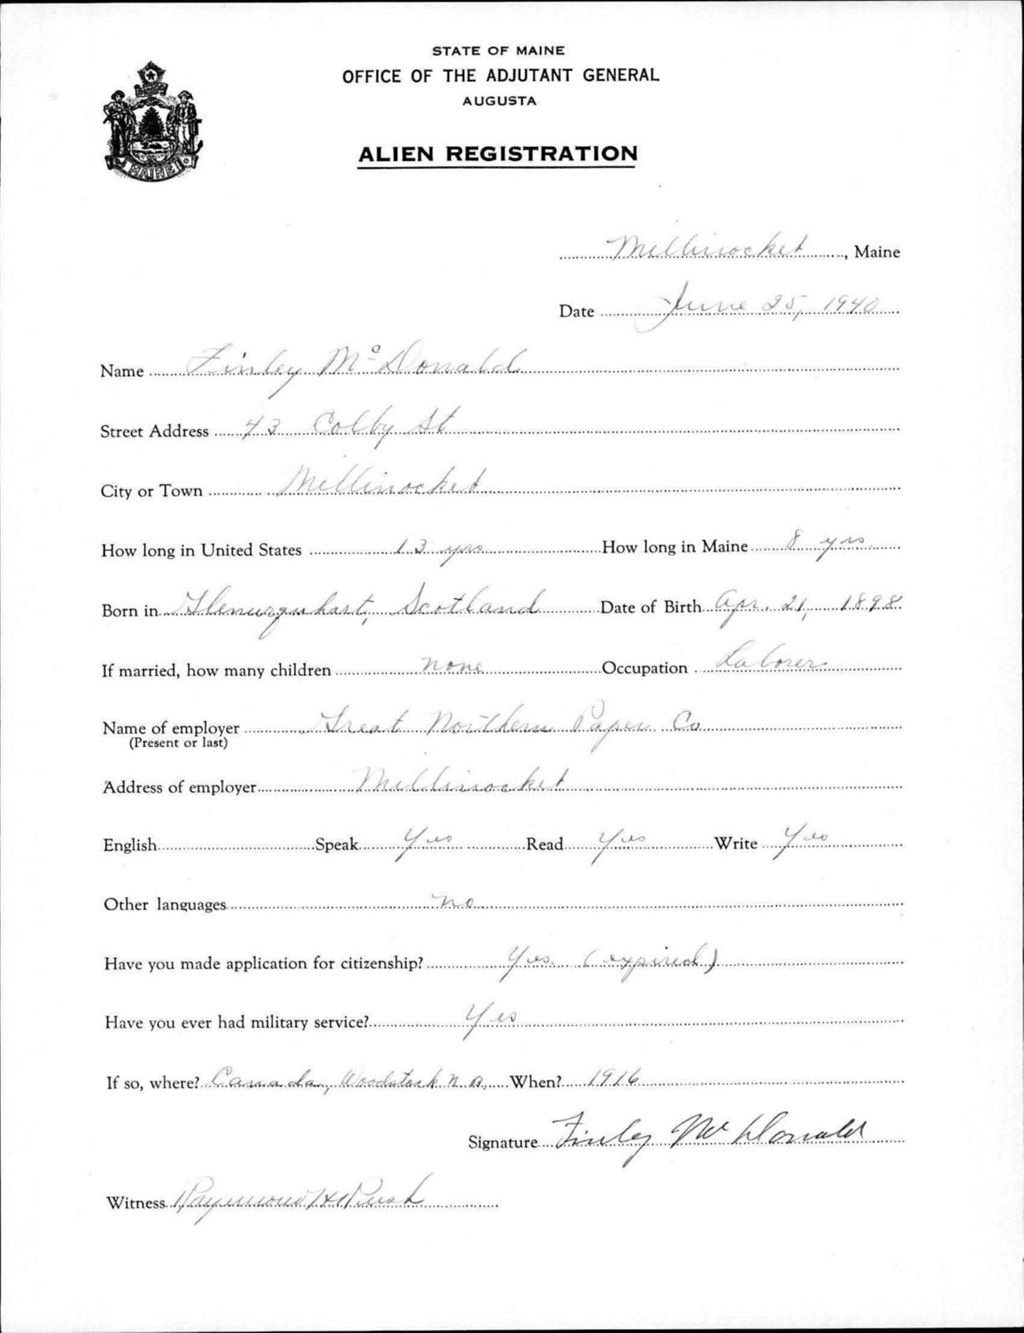 STATE OF MAINE
OFFICE OF THE ADJUTANT GENERAL
AUGUSTA
MAINE
ALIEN REGISTRATION
Millinocket, Maine
Date June 25, 1940
Name Finley McDonald
Street Address 43 Colby St
City or Town Millinocket
How long in United States 13 yrs How long in Maine 8 yrs.
Born in Glenurquhart, Scotland Date of Birth Apr. 21, 1898
If married, how many children none Occupation Laborer
Name of employer Great Northern Paper Co
(Present or last)
Address of employer Millinocket
English Speak Yes Read Yes Write Yes
Other languages no
Have you made application for citizenship? Yes (expired)
Have you ever had military service? Yes
If so, where? Canada, Woodstock N.B. When? 1916
Signature Finley McDonald
Witness Raymond H Rush